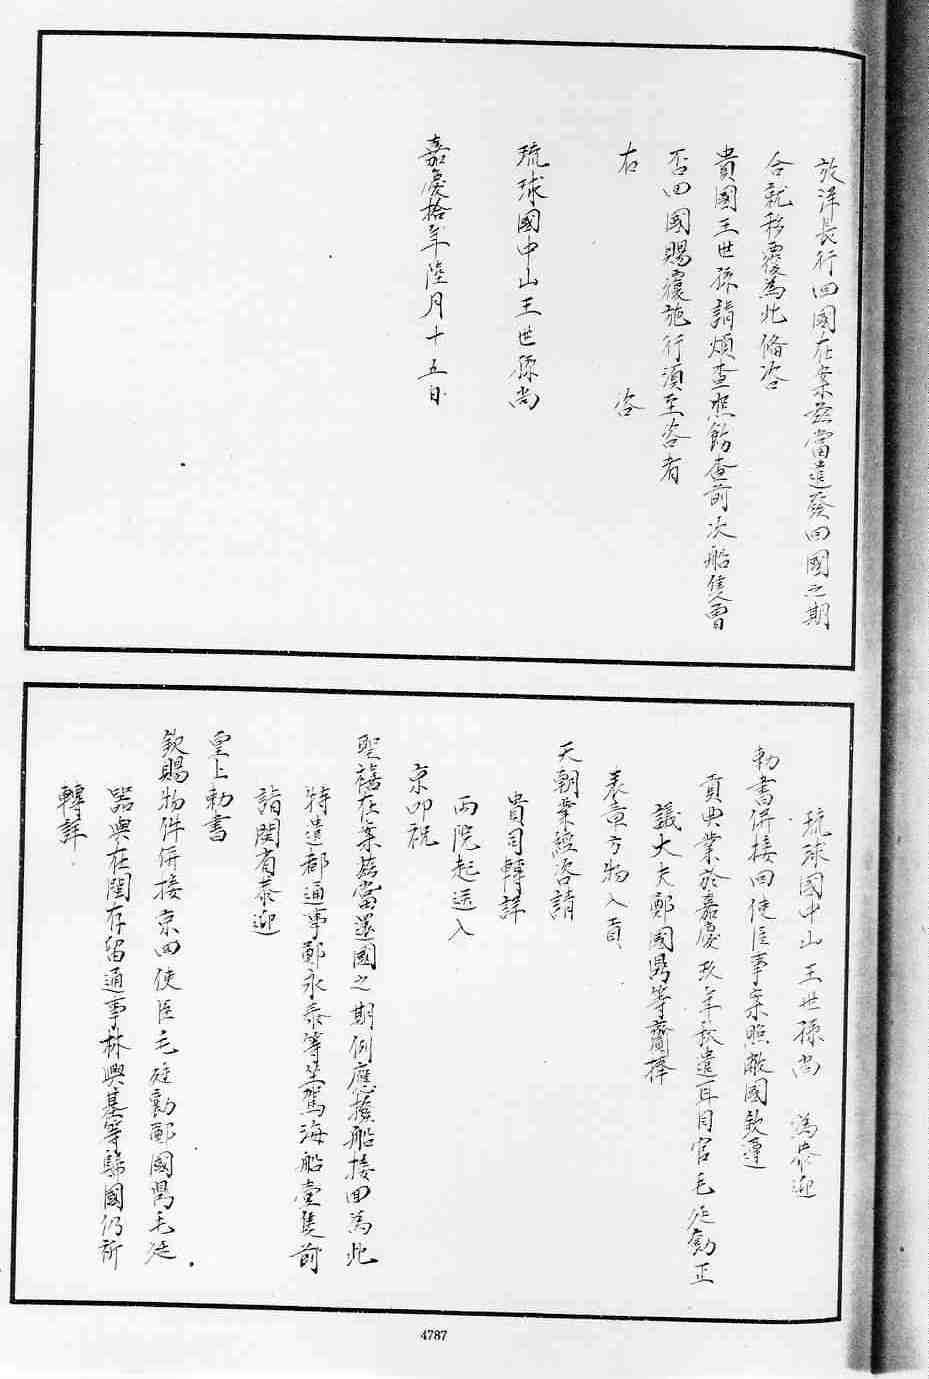 於洋長行回國在案茲當遣發回國之期
合就移覆為此備咨
貴國王世孫請煩查照飭查前次船隻曾
否回國賜覆施行須至咨者
右　　咨
琉球國中山王世孫尚
嘉慶拾年陸月十五日
琉球國中山王世孫尚　為恭迎
勅書併接回使臣事案照敝國欽遵
貢典業於嘉慶玖年秋遣耳目官毛廷勷正
議大夫鄭國鼎等齎捧
表章方物入貢
天朝業經咨請
貴司轉詳
兩院起送入
京叩祝
聖禧在案茲當還國之期例應撥船接回為此
特遣都通事鄭永泰等坐駕海船壹隻前
詣閩省恭迎
皇上勅書
欽賜物件併接京回使臣毛廷勷鄭國鼎毛廷
器與在閩存留通事林興基等歸國仍祈
轉詳
4787